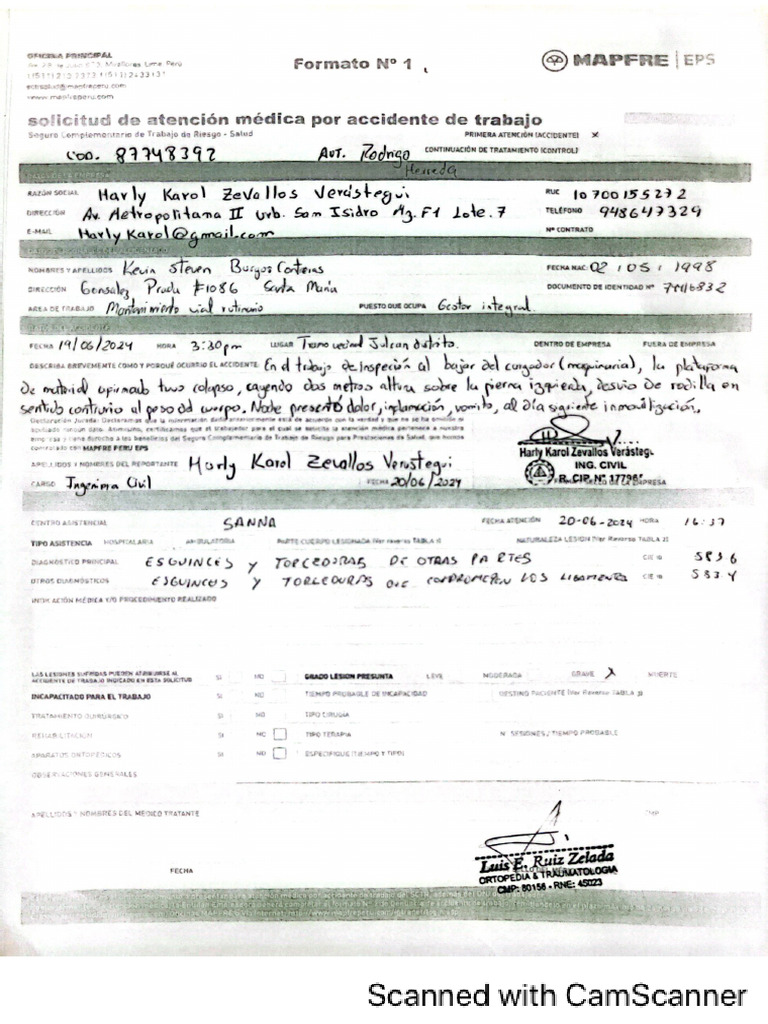 OFICINA PRINCIPAL
Av. 28 de Julio 873, Miraflores, Lima, Perú
www.mapfreperu.com
Formato Nº 1
MAPFRE | EPS
solicitud de atención médica por accidente de trabajo
Seguro Complementario de Trabajo de Riesgo - Salud
PRIMERA ATENCIÓN (ACCIDENTE) X
COD. 87748392 AUT. Rodrigo Heredia
CONTINUACIÓN DE TRATAMIENTO (CONTROL)
RAZÓN SOCIAL Harly Karol Zevallos Verástegui RUC 10700155272
DIRECCIÓN Av. Metropolitana II Urb. San Isidro Mz. F1 Lote. 7 TELÉFONO 948647329
E-MAIL HarlyKarol@gmail.com Nº CONTRATO
NOMBRES Y APELLIDOS Kevin Steven Burgos Contreras FECHA NAC: 02/05/1998
DIRECCIÓN Gonzalez Prada #1086 Santa María DOCUMENTO DE IDENTIDAD Nº
AREA DE TRABAJO Mantenimiento vial rutinario PUESTO QUE OCUPA Gestor integral.
FECHA 19/06/2024 HORA 3:30pm LUGAR Tramo vecinal Julcan distrito. DENTRO DE EMPRESA FUERA DE EMPRESA
DESCRIBA BREVEMENTE COMO Y PORQUÉ OCURRIO EL ACCIDENTE: En el trabajo de inspeción al bajar del cargador (maquinaria), la plataforma
de material afirmado tuvo colapso, cayendo dos metros altura sobre la pierna izquierda, desvio de rodilla en
sentido contrario al peso del cuerpo. Noche presentó dolor, inflamación, vomito, al día siguiente inmovilización.
Declaración Jurada: Declaramos que la información
contratado con MAPFRE PERU EPS
APELLIDOS Y NOMBRES DEL REPORTANTE Harly Karol Zevallos Verastegui
CARGO Ingeniera Civil FECHA 20/06/2024
Harly Karol Zevallos Verástegui
ING. CIVIL
SELLO DE LA EMPRESA
CENTRO ASISTENCIAL SANNA FECHA ATENCIÓN 20-06-2024 HORA 16:37
TIPO ASISTENCIA HOSPITALARIA AMBULATORIA PARTE CUERPO LESIONADA (Ver reverso TABLA 1) NATURALEZA LESION (Ver Reverso TABLA 2)
DIAGNÓSTICO PRINCIPAL ESGUINCES Y TORCEDURAS DE OTRAS PARTES CIE 10 S83.6
OTROS DIAGNÓSTICOS ESGUINCES Y TORCEDURAS QUE COMPROMETEN LOS LIGAMENTOS CIE 10 S83.4
INDICACIÓN MÉDICA Y/O PROCEDIMIENTO REALIZADO
LAS LESIONES SUFRIDAS PUEDEN ATRIBUIRSE AL
ACCIDENTE DE TRABAJO INDICADO EN ESTA SOLICITUD SI NO GRADO LESION PRESUNTA LEVE MODERADA GRAVE X MUERTE
INCAPACITADO PARA EL TRABAJO SI NO TIEMPO PROBABLE DE INCAPACIDAD DESTINO PACIENTE (Ver Reverso TABLA 3)
TRATAMIENTO QUIRÚRGICO SI NO TIPO CIRUGIA
REHABILITACIÓN SI NO TIPO TERAPIA Nº SESIONES / TIEMPO PROBABLE
APARATOS ORTOPÉDICOS SI NO ESPECIFIQUE (TIEMPO Y TIPO)
OBSERVACIONES GENERALES
APELLIDOS Y NOMBRES DEL MÉDICO TRATANTE CMP
FECHA
Luis E. Ruiz Zelada
ORTOPEDIA & TRAUMATOLOGIA
CMP: 80156 - RNE: 45023
Scanned with CamScanner